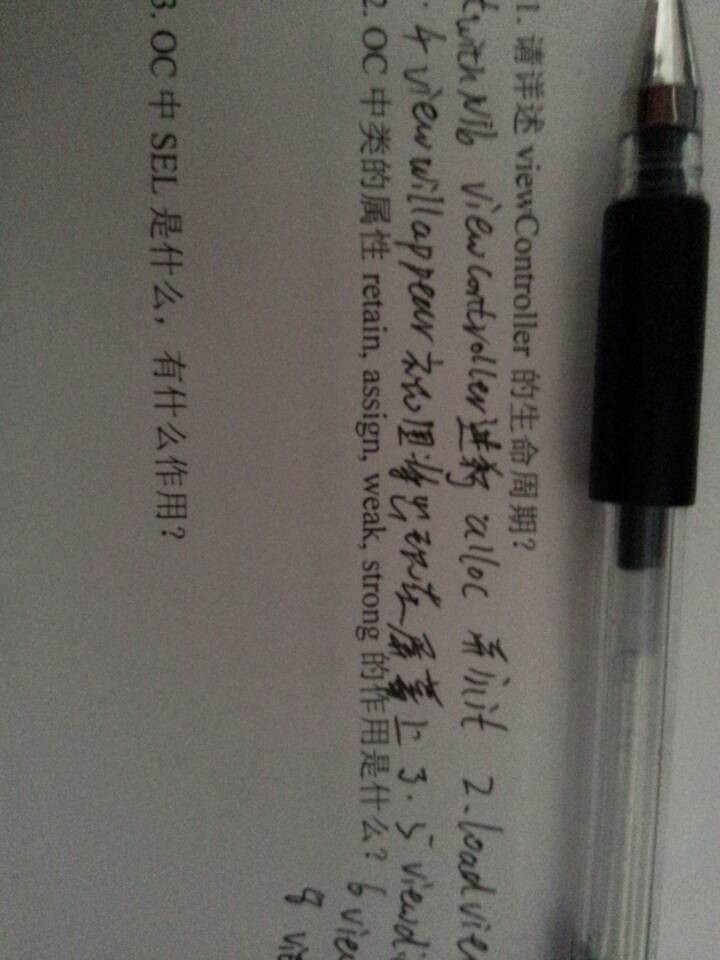 1. 请详述 viewController 的生命周期？
withNib viewcontroller进行 alloc 和init 2.loadvie
. 4 viewwillappear 视图将出现在屏幕上 3. 5 viewdi
2. OC 中类的属性 retain, assign, weak, strong 的作用是什么？ 6 vie
8 vie
3. OC 中 SEL 是什么，有什么作用？